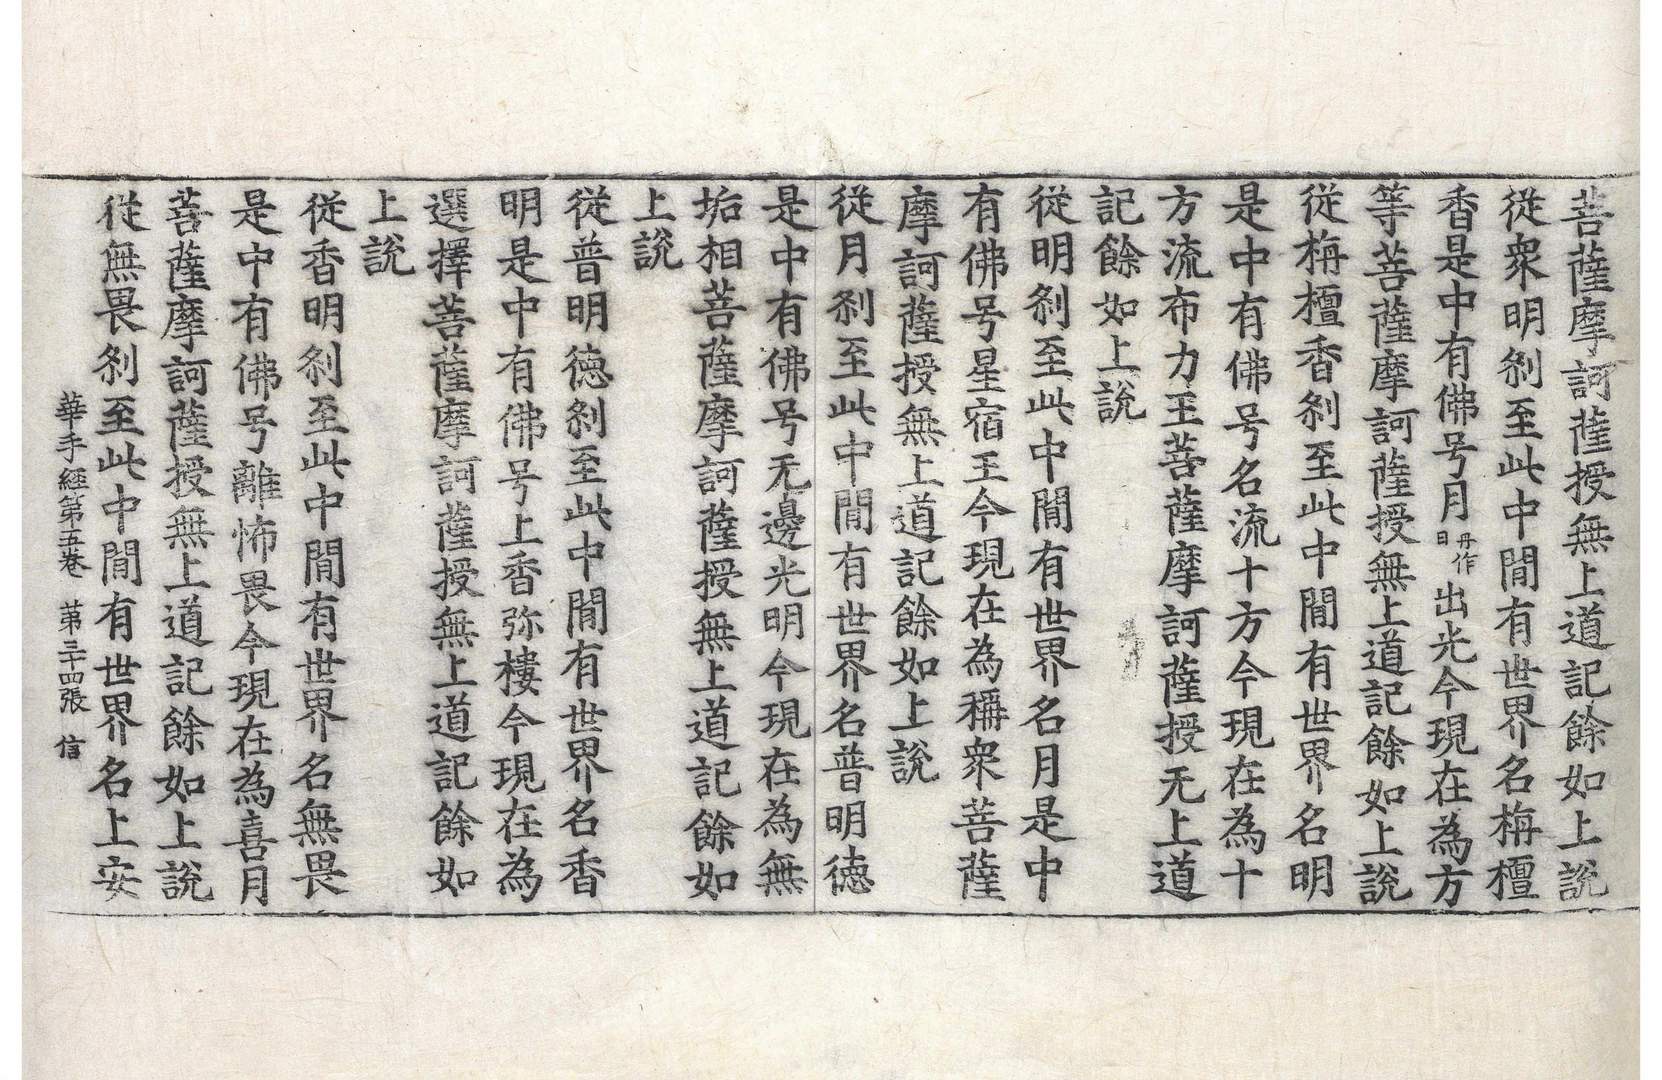 菩薩摩訶薩授無上道記餘如上說
從衆明刹至此中間有世界名栴檀
香是中有佛号月丹作日出光今現在為方
等菩薩摩訶薩授無上道記餘如上說
從栴檀香刹至此中間有世界名明
是中有佛号名流十方今現在為十
方流布力王菩薩摩訶薩授无上道
記餘如上說
從明刹至此中間有世界名月是中
有佛号星宿王今現在為稱衆菩薩
摩訶薩授無上道記餘如上說
從月刹至此中間有世界名普明德
是中有佛号无邊光明今現在為無
垢相菩薩摩訶薩授無上道記餘如
上說
從普明德刹至此中間有世界名香
明是中有佛号上香弥樓今現在為
選擇菩薩摩訶薩授無上道記餘如
上說
從香明刹至此中間有世界名無畏
是中有佛号離怖畏今現在為喜月
菩薩摩訶薩授無上道記餘如上說
從無畏刹至此中間有世界名上安
華手經第五卷 第三十四張 信